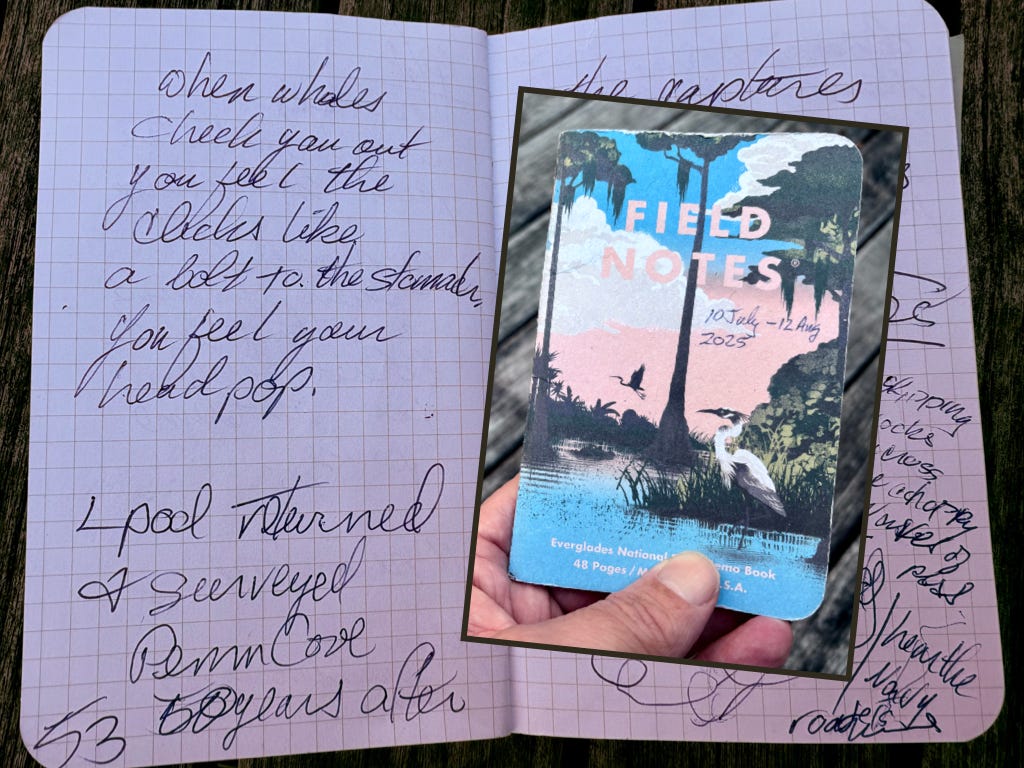 when whales
check you out
you feel the
clicks like
a bolt to the stomach,
you feel your
head pop.
L pod returned
& surveyed
Penn Cove
53 50 years after
the captures
FIELD
NOTES®
10 July - 12 Aug
2025
Everglades National emo Book
48 Pages / M S.A.
skipping
rocks
cross
choppy
of
hear the
Navy